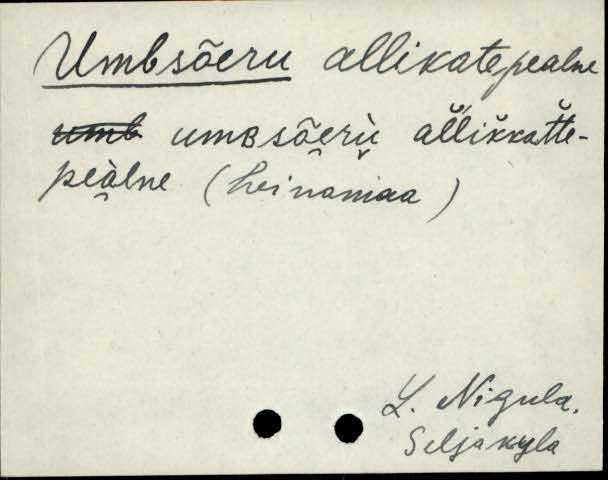 Umbsõeru allikatepealne
umb umʙsõerù ališkkatte-
peàlne (heinamaa)
L. Nigula.
Seljaküla